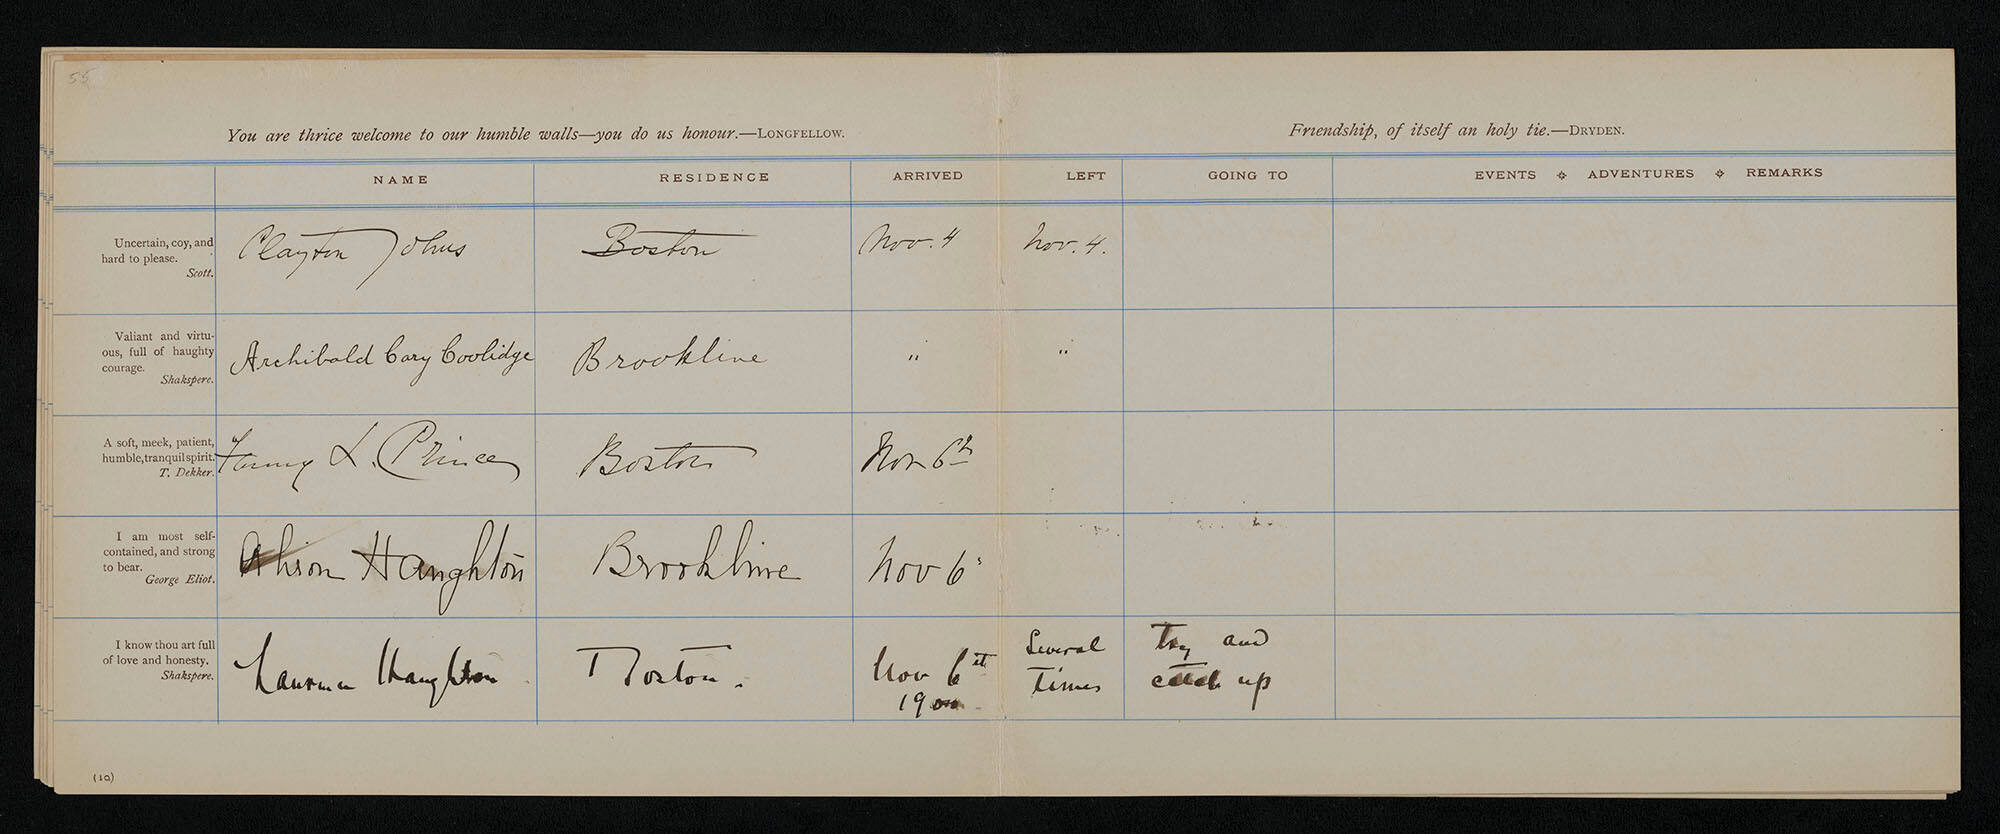 55
You are thrice welcome to our humble walls—you do us honour.—LONGFELLOW.
Friendship, of itself an holy tie.—DRYDEN.
NAME RESIDENCE ARRIVED LEFT GOING TO EVENTS ADVENTURES REMARKS
Uncertain, coy, and
hard to please.
Scott.
Clayton Johns Boston Nov. 4 Nov. 4.
Valiant and virtu-
ous, full of haughty
courage.
Shakspere.
Archibald Cary Coolidge Brookline " "
A soft, meek, patient,
humble, tranquil spirit.
T. Dekker.
Fanny L. Prince Boston Nov 6th
I am most self-
contained, and strong
to bear.
George Eliot.
Alison Haughton Brookline Nov 6
I know thou art full
of love and honesty.
Shakspere.
Haughton Boston. Nov 6
1900
Several
Times
Try and
catch up
(10)